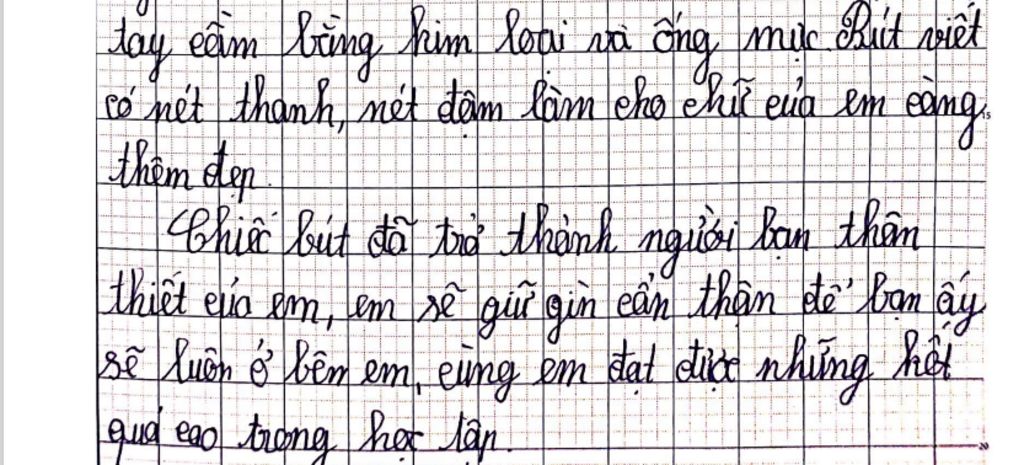 tay cầm bằng kim loại và ống mực. Bút viết
có nét thanh, nét đậm làm cho chữ của em càng
thêm đẹp.
Chiếc bút đã trở thành người bạn thân
thiết của em, em sẽ giữ gìn cẩn thận để bạn ấy
sẽ luôn ở bên em, cùng em đạt được những kết
quả cao trong học tập.